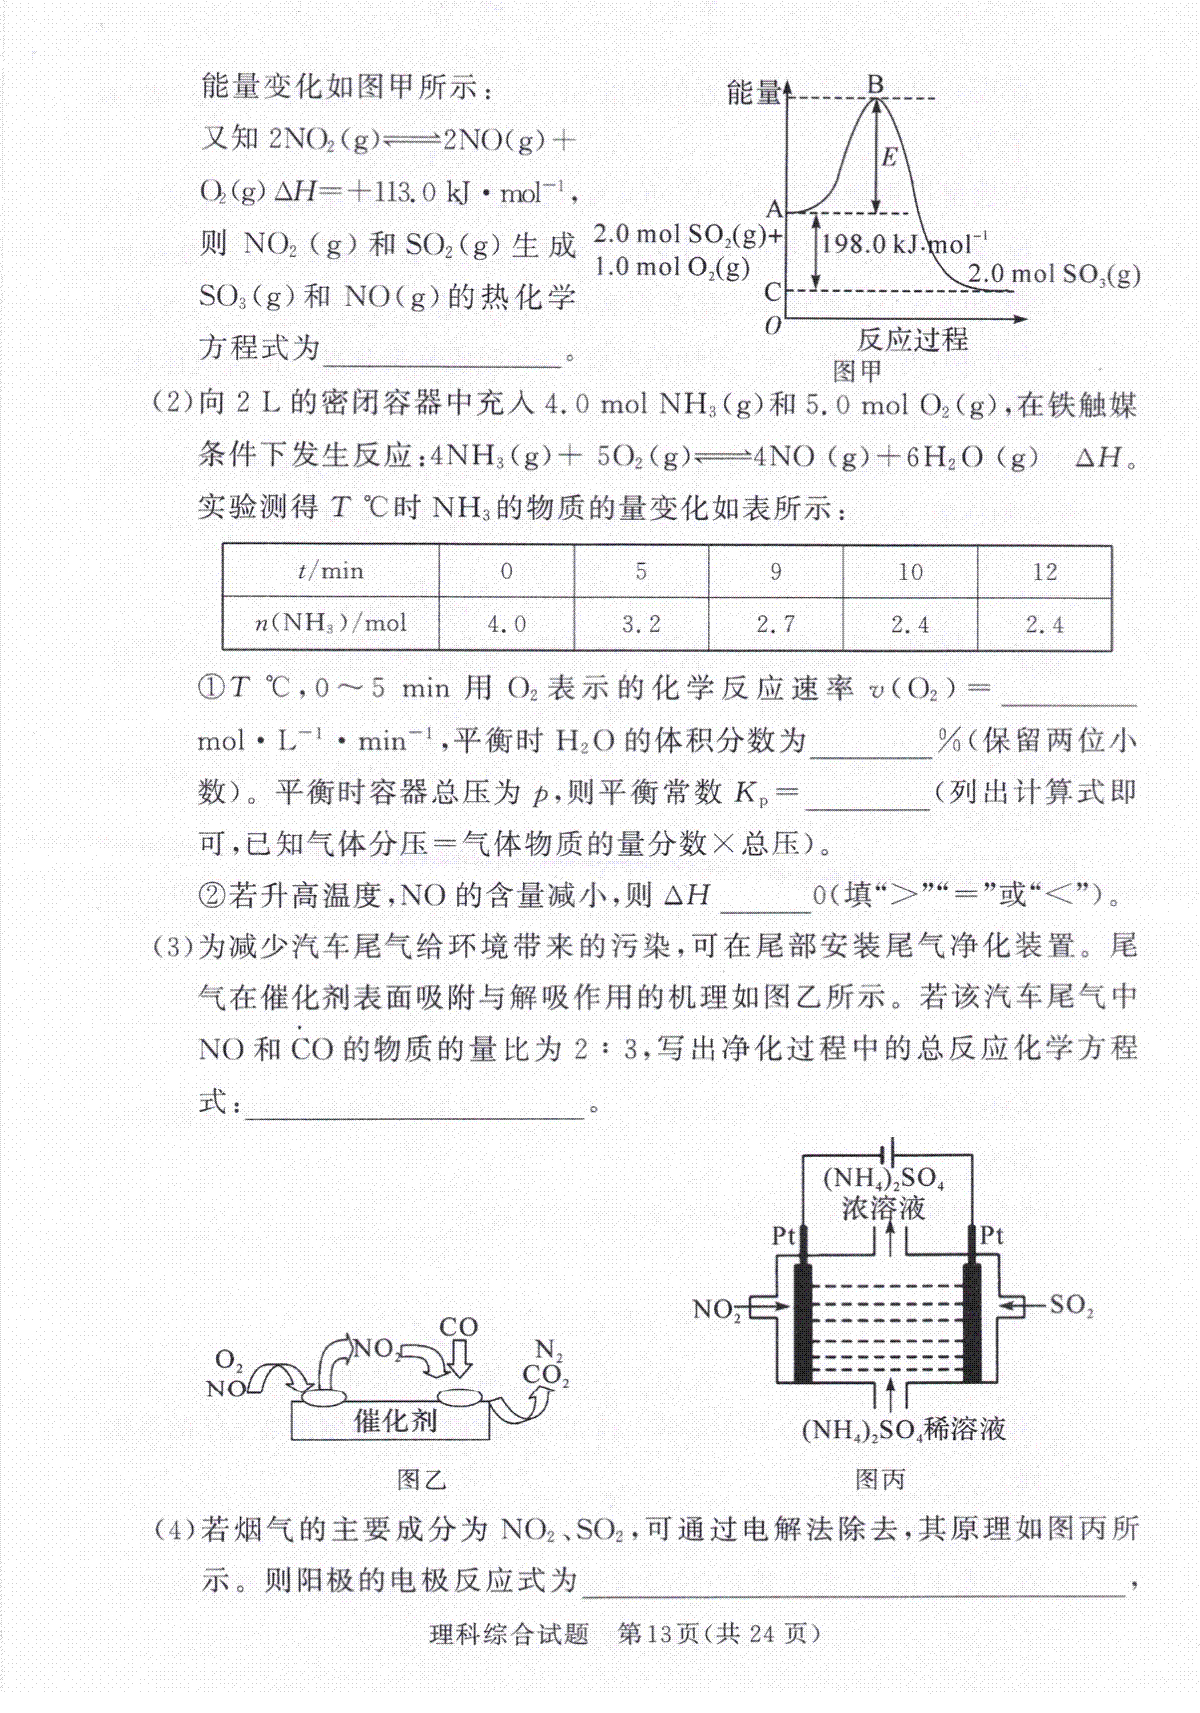 能量变化如图甲所示：
又知 2NO₂(g)⇌2NO(g)＋
O₂(g) △H＝＋113.0 kJ·mol⁻¹，
则 NO₂（g）和 SO₂(g) 生成
SO₃(g)和 NO(g)的热化学
方程式为________。
能量
B
E
A
2.0 mol SO₂(g)+
1.0 mol O₂(g)
198.0 kJ·mol⁻¹
2.0 mol SO₃(g)
C
O
反应过程
图甲
(2)向 2 L 的密闭容器中充入 4.0 mol NH₃(g)和 5.0 mol O₂(g)，在铁触媒
条件下发生反应：4NH₃(g)＋ 5O₂(g)⇌4NO（g)＋6H₂O（g） △H。
实验测得 T ℃时 NH₃的物质的量变化如表所示：
t/min 0 5 9 10 12
n(NH₃)/mol 4.0 3.2 2.7 2.4 2.4
①T ℃，0～5 min 用 O₂ 表示的化学反应速率 v(O₂)＝________
mol·L⁻¹·min⁻¹，平衡时 H₂O 的体积分数为________%(保留两位小
数)。平衡时容器总压为 p，则平衡常数 Kₚ＝________(列出计算式即
可，已知气体分压＝气体物质的量分数×总压)。
②若升高温度，NO 的含量减小，则 △H ______0(填“＞”“＝”或“＜”)。
(3)为减少汽车尾气给环境带来的污染，可在尾部安装尾气净化装置。尾
气在催化剂表面吸附与解吸作用的机理如图乙所示。若该汽车尾气中
NO 和 CO 的物质的量比为 2∶3，写出净化过程中的总反应化学方程
式：________。
O₂
NO
NO₂
CO
N₂
CO₂
催化剂
图乙
(NH₄)₂SO₄
浓溶液
Pt
Pt
NO₂
SO₂
(NH₄)₂SO₄稀溶液
图丙
(4)若烟气的主要成分为 NO₂、SO₂，可通过电解法除去，其原理如图丙所
示。则阳极的电极反应式为________，
理科综合试题 第13页(共 24 页)